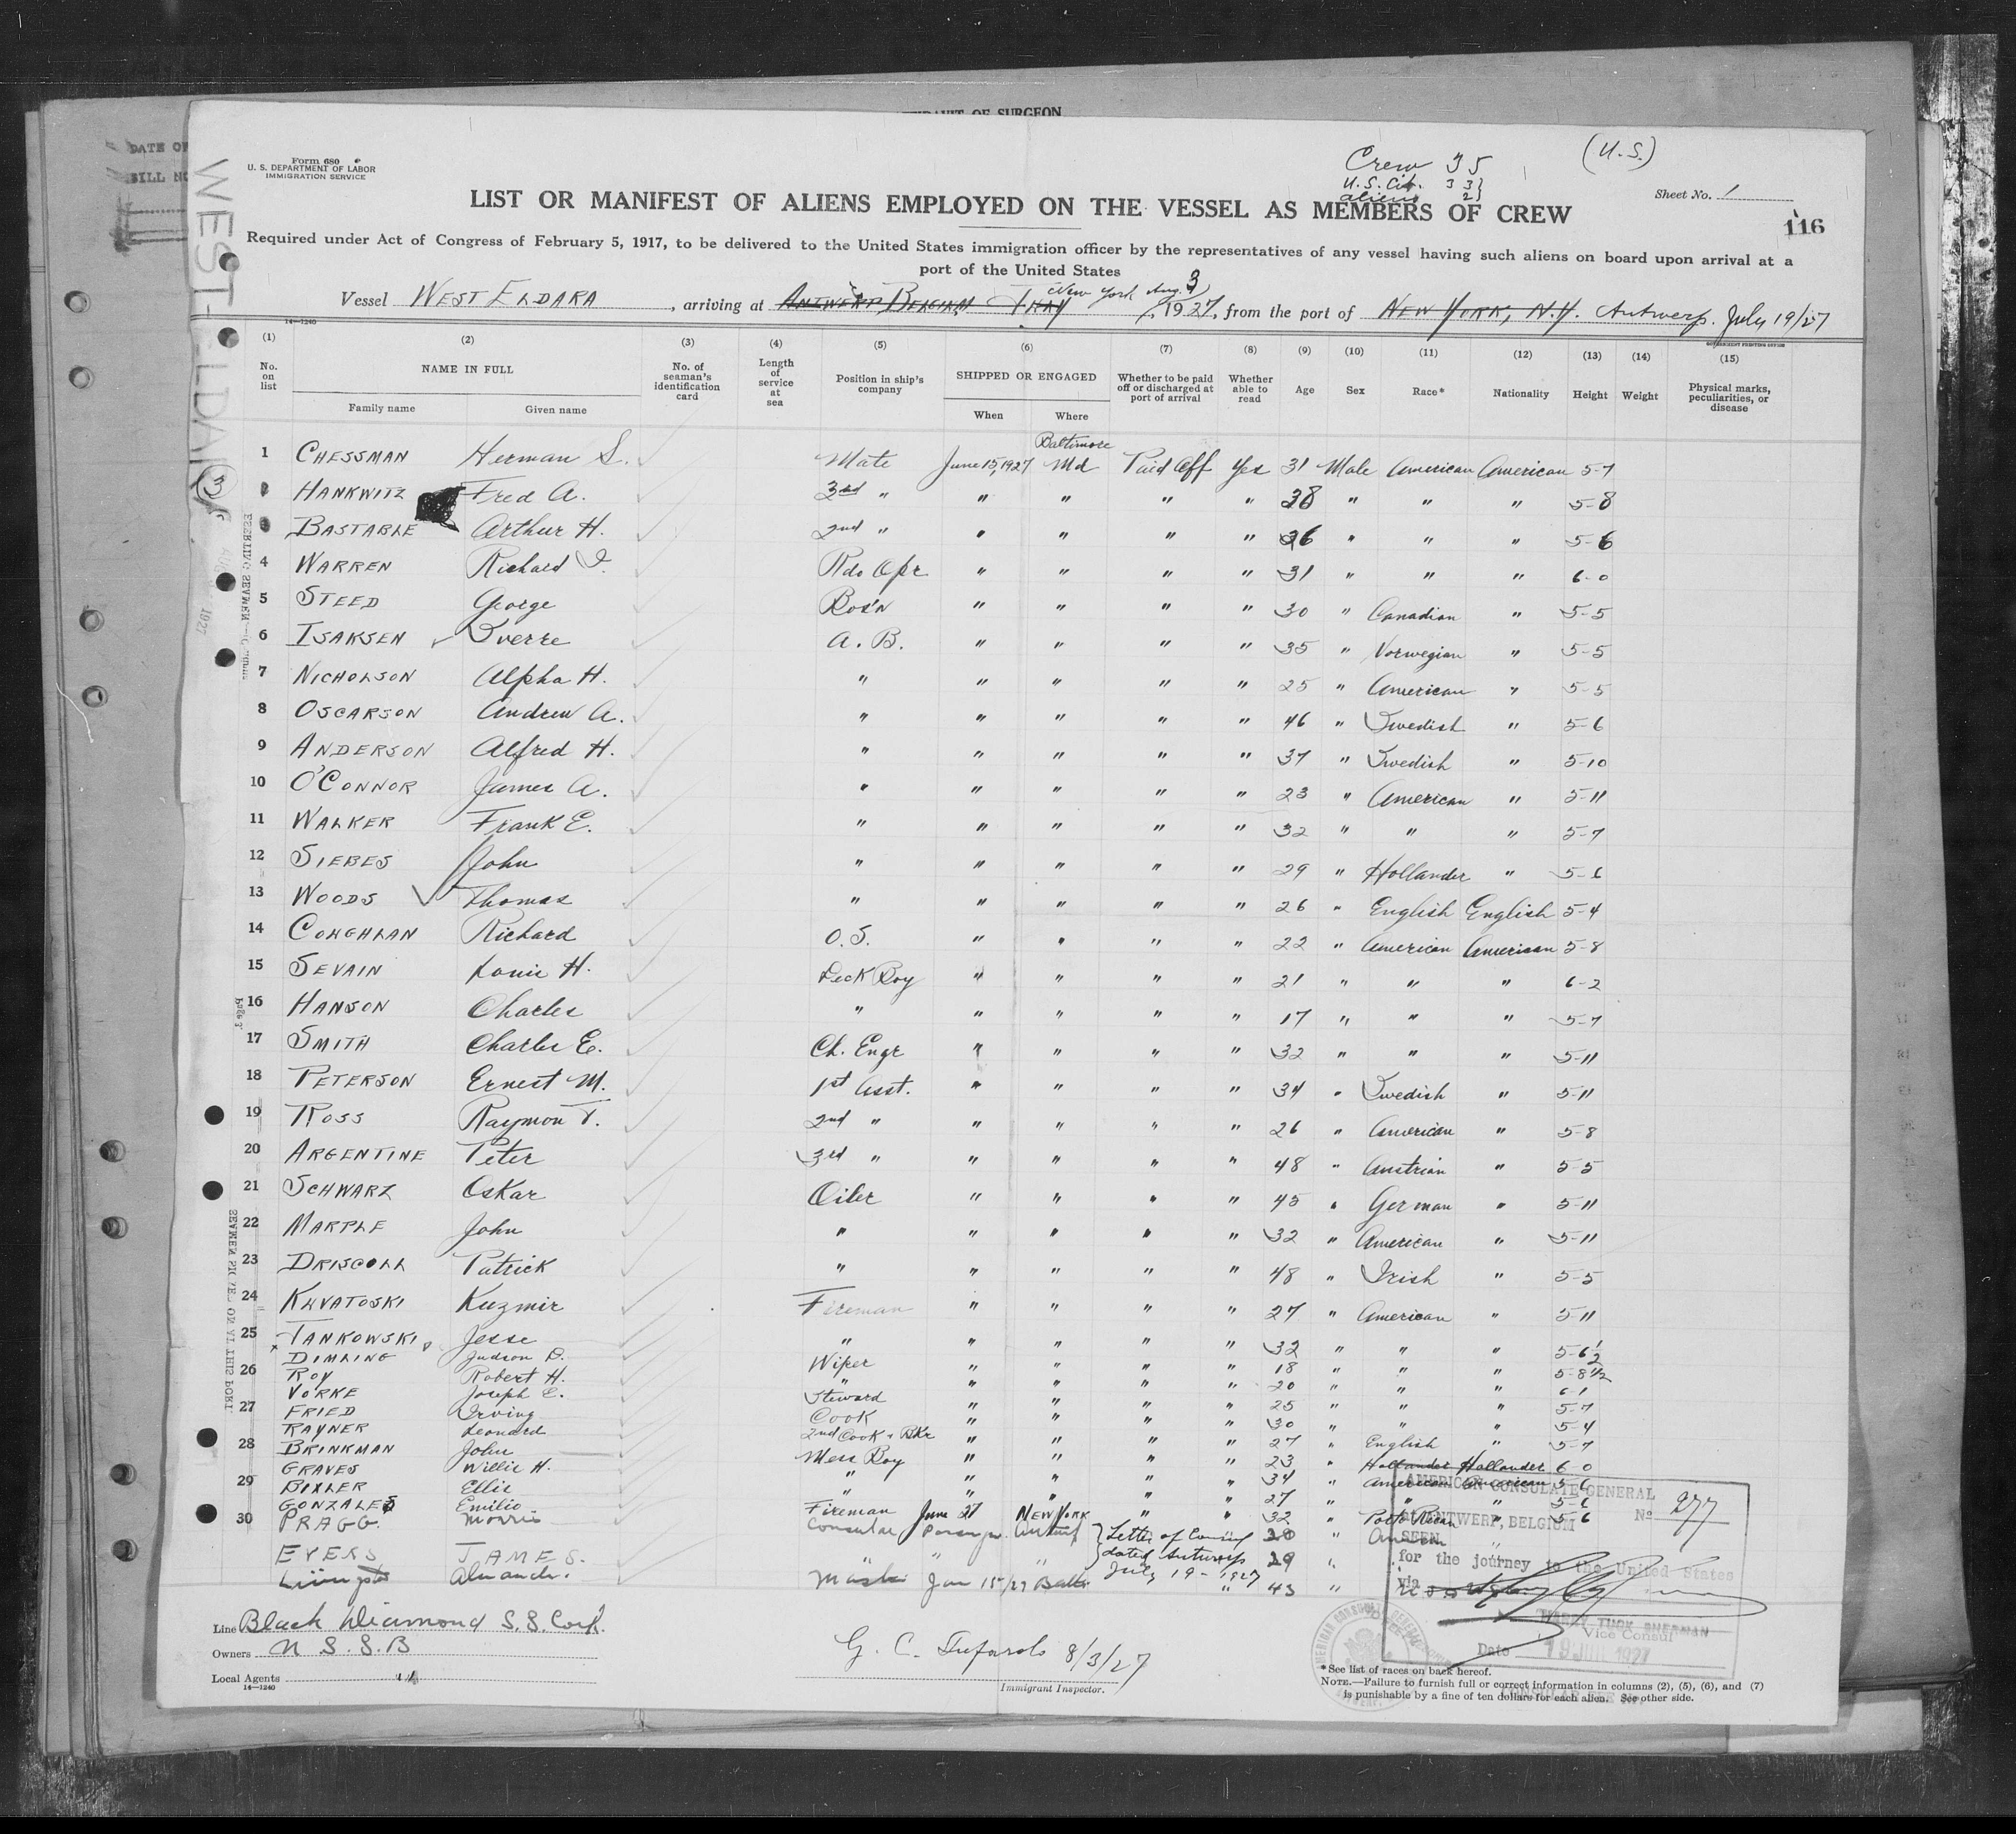 AFFIDAVIT OF SURGEON
Form 680
U. S. DEPARTMENT OF LABOR
IMMIGRATION SERVICE
Crew 35
U.S. Cit. 33
aliens 2
(U.S.)
Sheet No. 1
LIST OR MANIFEST OF ALIENS EMPLOYED ON THE VESSEL AS MEMBERS OF CREW
116
Required under Act of Congress of February 5, 1917, to be delivered to the United States immigration officer by the representatives of any vessel having such aliens on board upon arrival at a
port of the United States
Vessel WEST ELDARA, arriving at New York Aug. 3, 1927, from the port of NEW YORK, N.Y. Antwerp. July 19/27
14—1240
(1) (2) (3) (4) (5) (6) (7) (8) (9) (10) (11) (12) (13) (14) (15)
No. on list NAME IN FULL No. of seaman's identification card Length of service at sea Position in ship's company SHIPPED OR ENGAGED Whether to be paid off or discharged at port of arrival Whether able to read Age Sex Race* Nationality Height Weight Physical marks, peculiarities, or disease
Family name Given name When Where
Baltimore
1 CHESSMAN Herman S. Mate June 15, 1927 Md Paid Off Yes 31 Male American American 5-7
HANKWITZ Fred A. 3rd " " " " " 38 " " " 5-8
BASTABLE Arthur H. 2nd " " " " " 36 " " " 5-6
4 WARREN Richard I. Rdo Opr " " " " 31 " " " 6-0
5 STEED George Bos'n " " " " 30 " Canadian " 5-5
6 ISAKSEN Sverre A.B. " " " " 35 " Norwegian " 5-5
7 NICHOLSON Alpha H. " " " " " 25 " American " 5-5
8 OSCARSON Andrew A. " " " " " 46 " Swedish " 5-6
9 ANDERSON Alfred H. " " " " " 37 " Swedish " 5-10
10 O'CONNOR James A. " " " " " 23 " American " 5-11
11 WALKER Frank E. " " " " " 32 " " " 5-7
12 SIEBES John " " " " " 29 " Hollander " 5-6
13 WOODS Thomas " " " " " 26 " English English 5-4
14 COUGHLAN Richard O.S. " " " " 22 " American American 5-8
15 SEVAIN Louie H. Deck Boy " " " " 21 " " " 6-2
16 HANSON Charles " " " " " 17 " " " 5-7
17 SMITH Charles E. Ch. Engr " " " " 32 " " " 5-11
18 PETERSON Ernest M. 1st Asst. " " " " 34 " Swedish " 5-11
19 ROSS Raymon T. 2nd " " " " " 26 " American " 5-8
20 ARGENTINE Peter 3rd " " " " " 48 " Austrian " 5-5
21 SCHWARZ Oskar Oiler " " " " 45 " German " 5-11
22 MARPLE John " " " " " 32 " American " 5-11
23 DRISCOLL Patrick " " " " " 48 " Irish " 5-5
24 KUVATOSKI Kuzmir Fireman " " " " 27 " American " 5-11
25 TANKOWSKI Jesse " " " " " 32 " " " 5-6½
DIMLING Judson D. Wiper " " " " 18 " " " 5-8½
26 ROY Robert H. " " " " " 20 " " " 6-1
VORKE Joseph E. Steward " " " " 25 " " " 5-7
27 FRIED Irving Cook " " " " 30 " " " 5-4
RAYNER Leonard 2nd Cook & Bkr " " " " 27 " English " 5-7
28 BRINKMAN John Mess Boy " " " " 23 " Hollander Hollander 6-0
GRAVES Willie H. " " " " " 34 " American American 5-6
29 BIXLER Ellis " " " " " 27 " " " 5-6
GONZALES Emilio Fireman June 21 New York " " 32 " Porto Rican " 5-6
30 PRAGG. Morris Consular Letter of
EYERS JAMES. " " " dated Antwerp 29 "
July 19-1927 " 43 "
AMERICAN CONSULATE GENERAL
ANTWERP, BELGIUM
No 277
SEEN
for the journey to the United States
via
HARRY TUCK SHERMAN
Vice Consul
Date 19 JUL 1927
Line Black Diamond S.S. Corp.
Owners U S. S. B
Local Agents
14—1240
8/3/27
Immigrant Inspector.
*See list of races on back hereof.
NOTE.—Failure to furnish full or correct information in columns (2), (5), (6), and (7)
is punishable by a fine of ten dollars for each alien. See other side.